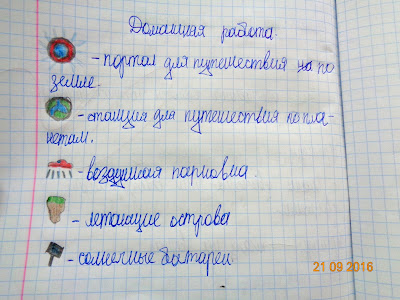 Домашняя работа.
- портал для путешествия на по
земле.
- станция для путешествия по пла-
нетам.
- воздушная парковка.
- летающие острова
- солнечные батареи
21 09 2016